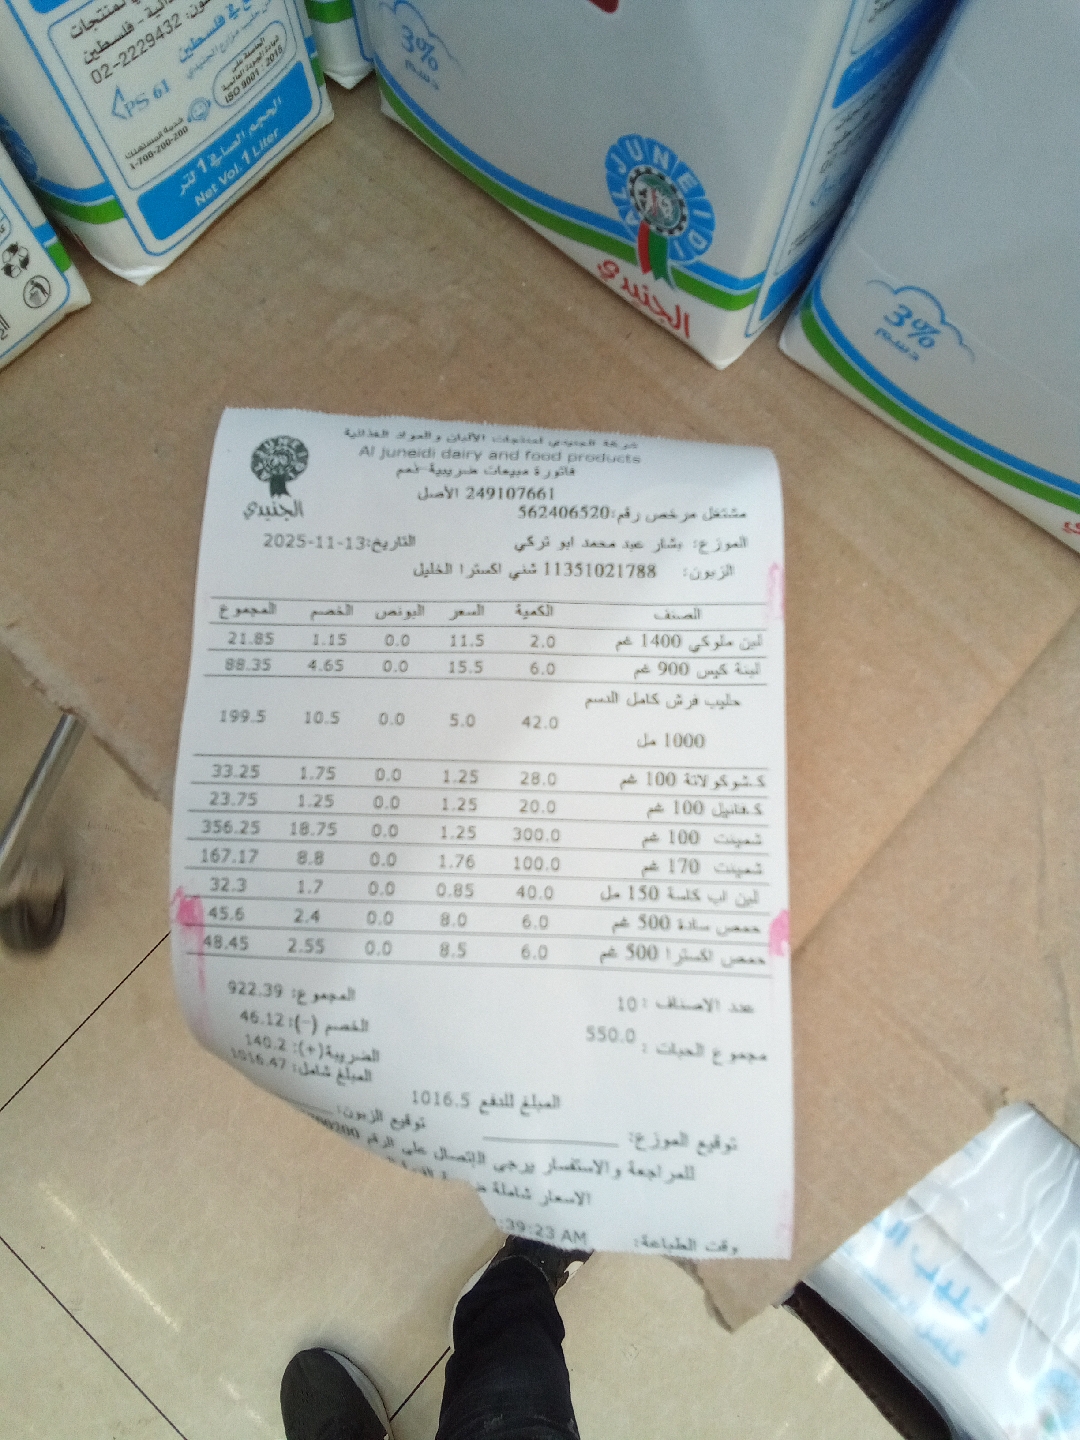 لمنتجات
فلسطين
02-2229432
PS 61
ISO 9001 : 2015
خدمة المستهلك
1-700-200-200
الحجم الصافي 1 لتر
Net Vol. 1 Liter
3%
دسم
AL JUNEIDI
الجنيدي
3%
دسم
شركة الجنيدي لمنتجات الألبان والمواد الغذائية
Al Juneidi dairy and food products
فاتورة مبيعات ضريبية-نعم
249107661 الأصل
الجنيدي
مشتغل مرخص رقم:562406520
الموزع: بشار عبد محمد ابو تركي التاريخ:2025-11-13
الزبون: 11351021788 شني اكسترا الخليل
الصنف الكمية السعر البونص الخصم المجموع
لبن ملوكي 1400 غم 2.0 11.5 0.0 1.15 21.85
لبنة كيس 900 غم 6.0 15.5 0.0 4.65 88.35
حليب فرش كامل الدسم 1000 مل 42.0 5.0 0.0 10.5 199.5
ك.شوكولاتة 100 غم 28.0 1.25 0.0 1.75 33.25
ك.فانيل 100 غم 20.0 1.25 0.0 1.25 23.75
شمينت 100 غم 300.0 1.25 0.0 18.75 356.25
شمينت 170 غم 100.0 1.76 0.0 8.8 167.17
لبن اب كاسة 150 مل 40.0 0.85 0.0 1.7 32.3
حمص سادة 500 غم 6.0 8.0 0.0 2.4 45.6
حمص اكسترا 500 غم 6.0 8.5 0.0 2.55 48.45
عدد الاصناف : 10 المجموع: 922.39
مجموع الحبات : 550.0 الخصم (-): 46.12
الضريبة(+): 140.2
المبلغ شامل: 1016.47
المبلغ للدفع 1016.5
توقيع الموزع: توقيع الزبون:
للمراجعة والاستفسار يرجى الإتصال على الرقم
الاسعار شاملة
وقت الطباعة: :39:23 AM
حليب
كامل الدسم